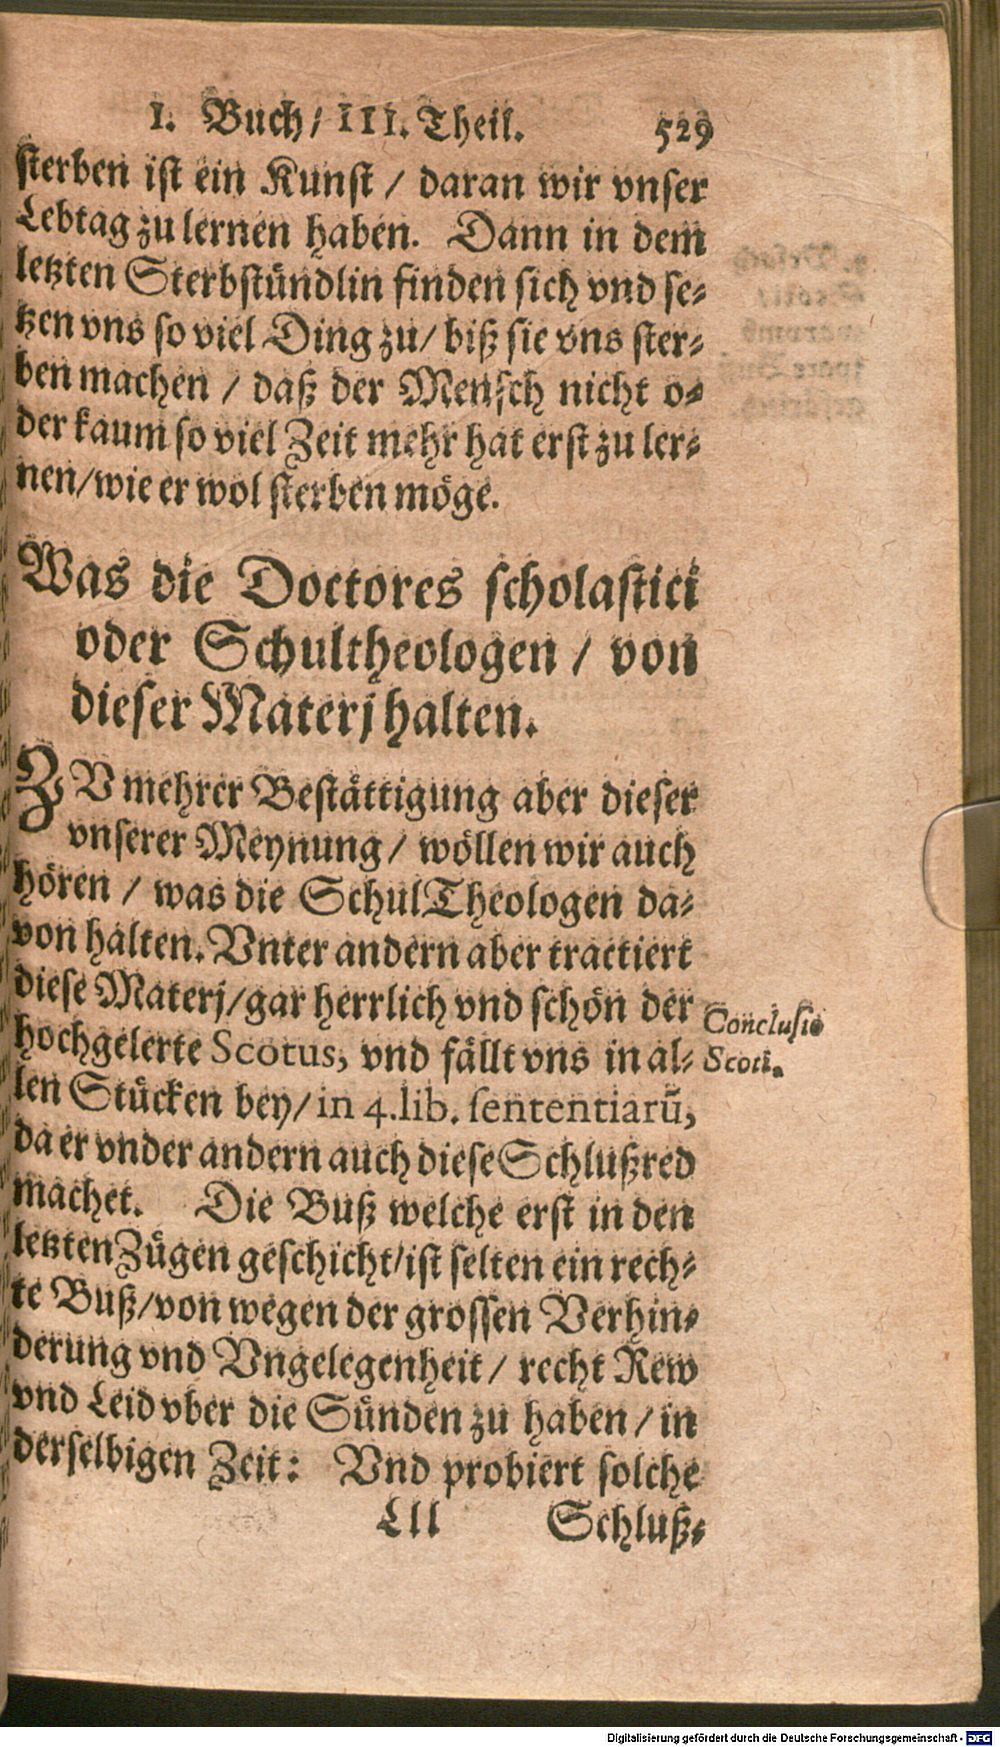 I. Buch / III. Theil. 529
sterben ist ein Kunst / daran wir vnser
Lebtag zu lernen haben. Dann in dem
letzten Sterbstündlin finden sich vnd se-
tzen vns so viel Ding zu / biß sie vns ster-
ben machen / daß der Mensch nicht o-
der kaum so viel Zeit mehr hat erst zu ler-
nen / wie er wol sterben möge.
Was die Doctores scholastici
oder Schultheologen / von
dieser Materj halten.
ZV mehrer Bestättigung aber dieser
vnserer Meynung / wöllen wir auch
hören / was die SchulTheologen da-
von halten. Vnter andern aber tractiert
diese Materj / gar herrlich vnd schön der
hochgelerte Scotus, vnd fällt vns in al-
len Stücken bey / in 4. lib. sententiarū,
da er vnder andern auch diese Schlußred
machet. Die Buß welche erst in den
letzten Zügen geschicht / ist selten ein rech-
te Buß / von wegen der grossen Verhin-
derung vnd Vngelegenheit / recht Rew
vnd Leid vber die Sünden zu haben / in
derselbigen Zeit: Vnd probiert solche
Lll Schluß-
Conclusio
Scoti.
Digitalisierung gefördert durch die Deutsche Forschungsgemeinschaft - DFG